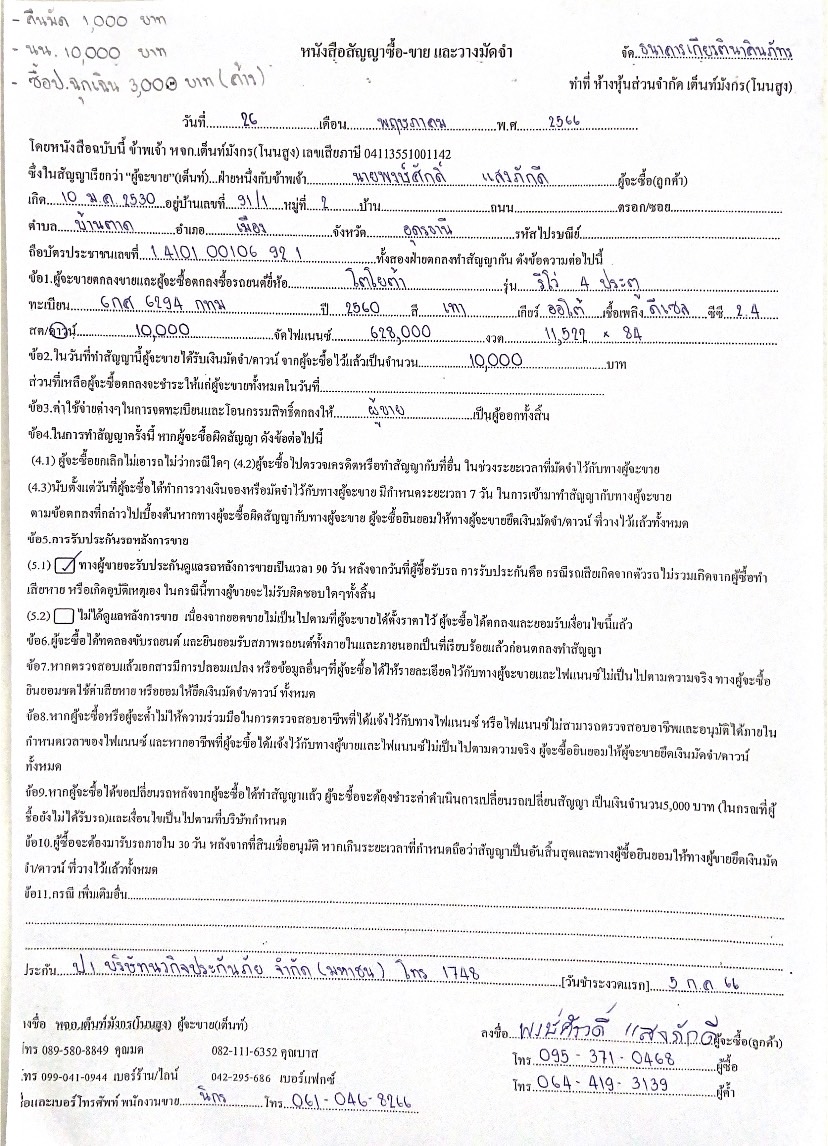 - คืนมัด 1,000 บาท
- นน. 10,000 บาท
- ซื้อป.ฉุกเฉิน 3,000 บาท (ค้าง)
หนังสือสัญญาซื้อ-ขาย และวางมัดจำ
จัด ธนาคารเกียรตินาคินภัทร
ทำที่ ห้างหุ้นส่วนจำกัด เต็นท์มังกร(โนนสูง)
วันที่ 26 เดือน พฤษภาคม พ.ศ 2566
โดยหนังสือฉบับนี้ ข้าพเจ้า หจก.เต็นท์มังกร(โนนสูง) เลขเสียภาษี 04113551001142
ซึ่งในสัญญาเรียกว่า "ผู้จะขาย"(เต็นท์)...ฝ่ายหนึ่งกับข้าพเจ้า นายพงษ์ศักดิ์ แสงภักดี ผู้จะซื้อ(ลูกค้า)
เกิด 10 ม.ค. 2530 อยู่บ้านเลขที่ 91/1 หมู่ที่ 2 บ้าน ถนน ตรอก/ซอย
ตำบล บ้านตาด อำเภอ เมือง จังหวัด อุดรธานี รหัสไปรษณีย์
ถือบัตรประชาชนเลขที่ 1 4101 00106 92 1 ทั้งสองฝ่ายตกลงทำสัญญากัน ดังข้อความต่อไปนี้
ข้อ1.ผู้จะขายตกลงขายและผู้จะซื้อตกลงซื้อรถยนต์ยี่ห้อ โตโยต้า รุ่น รีโว่ 4 ประตู
ทะเบียน 6กศ 6294 กทม ปี 2560 สี เทา เกียร์ ออโต้ เชื้อเพลิง ดีเซล ซีซี 2.4
สด/ดาวน์ 10,000 จัดไฟแนนซ์ 628,000 งวด 11,522 × 84
ข้อ2.ในวันที่ทำสัญญานี้ผู้จะขายได้รับเงินมัดจำ/ดาวน์ จากผู้จะซื้อไว้แล้วเป็นจำนวน 10,000 บาท
ส่วนที่เหลือผู้จะซื้อตกลงจะชำระให้แก่ผู้จะขายทั้งหมดในวันที่
ข้อ3.ค่าใช้จ่ายต่างๆในการจดทะเบียนและโอนกรรมสิทธิ์ตกลงให้ ผู้ขาย เป็นผู้ออกทั้งสิ้น
ข้อ4.ในการทำสัญญาครั้งนี้ หากผู้จะซื้อผิดสัญญา ดังข้อต่อไปนี้
(4.1) ผู้จะซื้อยกเลิกไม่เอารถไม่ว่ากรณีใดๆ (4.2)ผู้จะซื้อไปตรวจเครดิตหรือทำสัญญากับที่อื่น ในช่วงระยะเวลาที่มัดจำไว้กับทางผู้จะขาย
(4.3)นับตั้งแต่วันที่ผู้จะซื้อได้ทำการวางเงินจองหรือมัดจำไว้กับทางผู้จะขาย มีกำหนดระยะเวลา 7 วัน ในการเข้ามาทำสัญญากับทางผู้จะขาย
ตามข้อตกลงที่กล่าวไปเบื้องต้นหากทางผู้จะซื้อผิดสัญญากับทางผู้จะขาย ผู้จะซื้อยินยอมให้ทางผู้จะขายยึดเงินมัดจำ/ดาวน์ ที่วางไว้แล้วทั้งหมด
ข้อ5.การรับประกันรถหลังการขาย
(5.1) ☑ ทางผู้ขายจะรับประกันดูแลรถหลังการขายเป็นเวลา 90 วัน หลังจากวันที่ผู้ซื้อรับรถ การรับประกันคือ กรณีรถเสียเกิดจากตัวรถไม่รวมเกิดจากผู้ซื้อทำ
เสียหาย หรือเกิดอุบัติเหตุเอง ในกรณีนี้ทางผู้ขายจะไม่รับผิดชอบใดๆทั้งสิ้น
(5.2) ☐ ไม่ได้ดูแลหลังการขาย เนื่องจากยอดขายไม่เป็นไปตามที่ผู้จะขายได้ตั้งราคาไว้ ผู้จะซื้อได้ตกลงและยอมรับเงื่อนไขนี้แล้ว
ข้อ6.ผู้จะซื้อได้ทดลองขับรถยนต์ และยินยอมรับสภาพรถยนต์ทั้งภายในและภายนอกเป็นที่เรียบร้อยแล้วก่อนตกลงทำสัญญา
ข้อ7.หากตรวจสอบแล้วเอกสารมีการปลอมแปลง หรือข้อมูลอื่นๆที่ผู้จะซื้อได้ให้รายละเอียดไว้กับทางผู้จะขายและไฟแนนซ์ไม่เป็นไปตามความจริง ทางผู้จะซื้อ
ยินยอมชดใช้ค่าเสียหาย หรือยอมให้ยึดเงินมัดจำ/ดาวน์ ทั้งหมด
ข้อ8.หากผู้จะซื้อหรือผู้จะค้ำไม่ให้ความร่วมมือในการตรวจสอบอาชีพที่ได้แจ้งไว้กับทางไฟแนนซ์ หรือไฟแนนซ์ไม่สามารถตรวจสอบอาชีพและอนุมัติได้ภายใน
กำหนดเวลาของไฟแนนซ์ และหากอาชีพที่ผู้จะซื้อได้แจ้งไว้กับทางผู้ขายและไฟแนนซ์ไม่เป็นไปตามความจริง ผู้จะซื้อยินยอมให้ผู้จะขายยึดเงินมัดจำ/ดาวน์
ทั้งหมด
ข้อ9.หากผู้จะซื้อได้ขอเปลี่ยนรถหลังจากผู้จะซื้อได้ทำสัญญาแล้ว ผู้จะซื้อจะต้องชำระค่าดำเนินการเปลี่ยนรถเปลี่ยนสัญญา เป็นเงินจำนวน5,000 บาท (ในกรณีที่ผู้
ซื้อยังไม่ได้รับรถ)และเงื่อนไขเป็นไปตามที่บริษัทกำหนด
ข้อ10.ผู้ซื้อจะต้องมารับรถภายใน 30 วัน หลังจากที่สินเชื่ออนุมัติ หากเกินระยะเวลาที่กำหนดถือว่าสัญญาเป็นอันสิ้นสุดและทางผู้ซื้อยินยอมให้ทางผู้ขายยึดเงินมัด
จำ/ดาวน์ ที่วางไว้แล้วทั้งหมด
ข้อ11.กรณี เพิ่มเติมอื่น
ประกัน ป.1 บริษัทนวกิจประกันภัย จำกัด (มหาชน) โทร 1748 [วันชำระงวดแรก] 5 ก.ค 66
งชื่อ หจก.เต็นท์มังกร(โนนสูง) ผู้จะขาย(เต็นท์)
ลงชื่อ พงษ์ศักดิ์ แสงภักดี ผู้จะซื้อ(ลูกค้า)
โทร 089-580-8849 คุณมด 082-111-6352 คุณบาส
โทร 095-371-0468 ผู้ซื้อ
โทร 099-041-0944 เบอร์ร้าน/ไลน์ 042-295-686 เบอร์แฟกซ์
โทร 064-419-3139 ผู้ค้ำ
ชื่อและเบอร์โทรศัพท์ พนักงานขาย นิกร โทร 061-046-8266